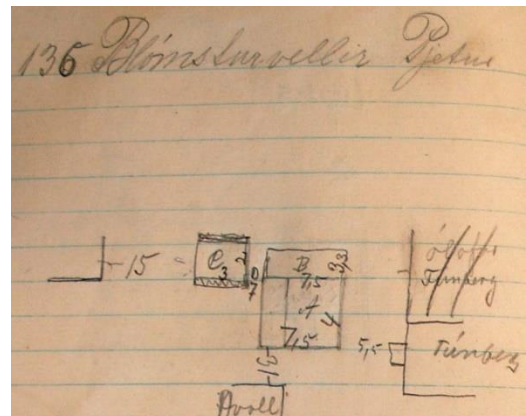 136 Blómsturvellir Pjetur
15
C
3
2
B
7,5
3,3
A
4
7,5
Túnberg
5,5
Túnberg